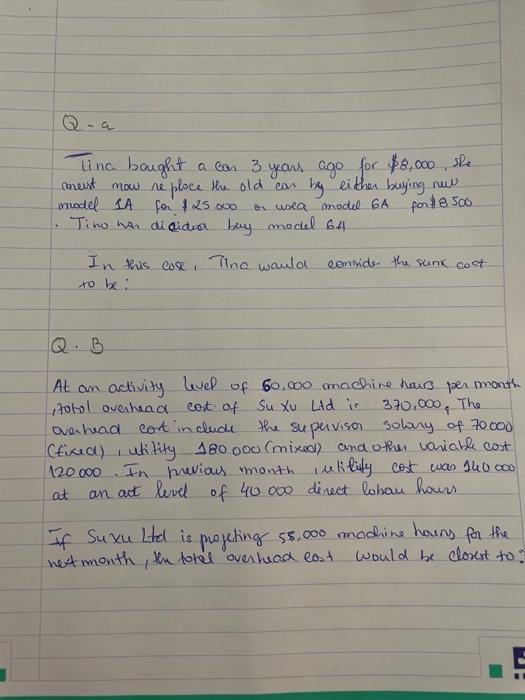 Q-a
Tina bought a car 3 years ago for $8,000, she
must now replace the old car by either buying new
model 1A for $25.000 or used model 6A for $8500
. Tina has dicided buy model 6A
In this case, Tina would consider the sunk cost
to be:
Q. B
At an activity level of 60.000 machine hours per month
, total overhead cost of Su Xu Ltd is 370,000, The
overhead cost include the supervisor solary of 70000
(fixed), utility 180000 (mixed) and other variable cost
120000. In previous month, utility cost was 140000
at an act level of 40 000 direct labour hours
If Suxu Ltd is projecting 55,000 machine hours for the
next month, the total overhead cost would be closest to: